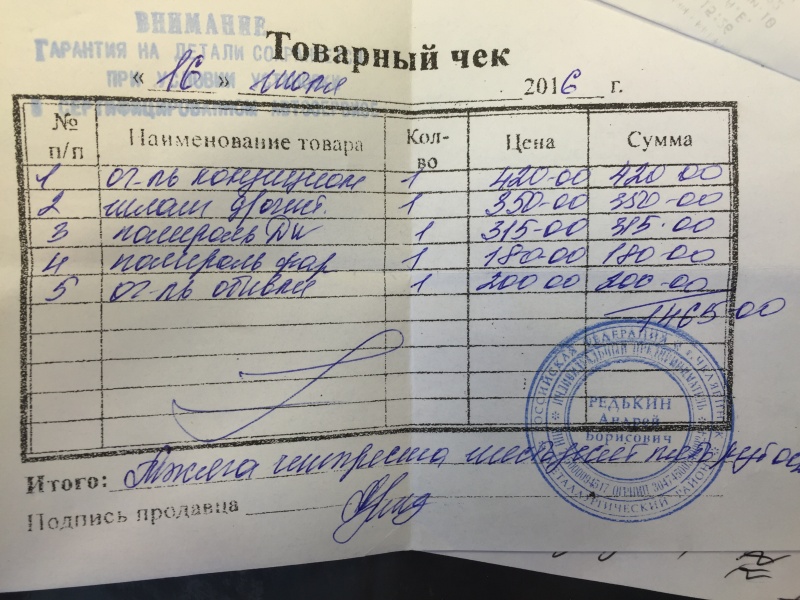 ВНИМАНИЕ
ГАРАНТИЯ НА ДЕТАЛИ
ПРИ УСЛОВИИ
В СЕРТИФИЦИРОВАННОМ АВТОСЕРВИСЕ
Товарный чек
« 16 » июля 2016 г.
№ п/п Наименование товара Кол-во Цена Сумма
1 оч-ль кондицион 1 420-00 420 00
2 шланг 1 350-00 350-00
3 полироль 1 315-00 315-00
4 полироль фар 1 180-00 180-00
5 оч-ль обивки 1 200 00 200-00
1465 00
РОССИЙСКАЯ ФЕДЕРАЦИЯ г. ЧЕЛЯБИНСК
ИНДИВИДУАЛЬНЫЙ ПРЕДПРИНИМАТЕЛЬ
РЕДЬКИН
Андрей
Борисович
МЕТАЛЛУРГИЧЕСКИЙ РАЙОН
Итого: Тысяча четыреста шестьдесят пять руб 00
Подпись продавца